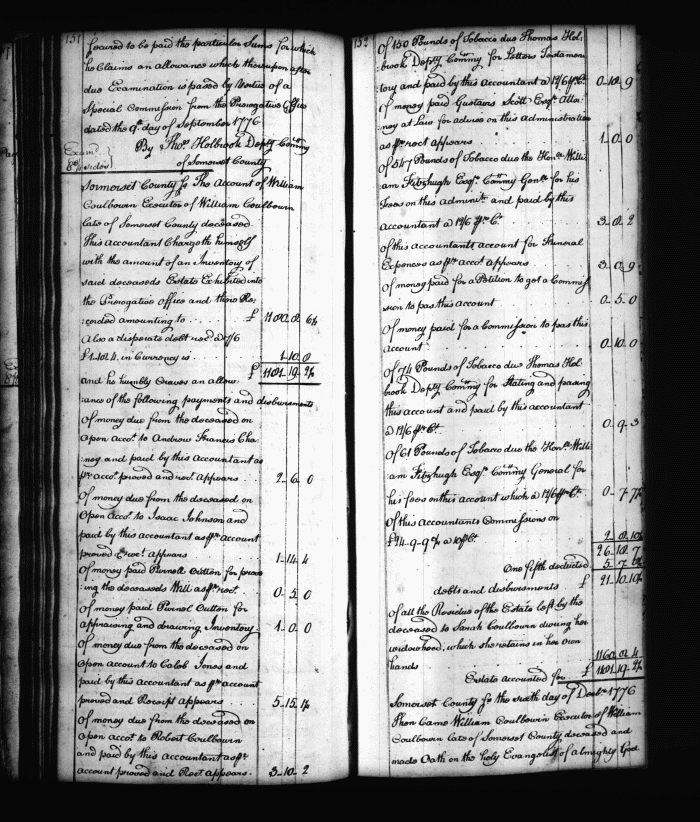 151
secured to be paid the particular Sums for which
he Claims an Allowance which thereupon after
due Examination is passed by Virtue of a
Special Commission from the Prerogative Office
dated the 9th day of September 1776
By Thos. Holbrook Depty Commy
of Somerset County
Examd.
Somerset County ss The Account of William
Coulbourn Executor of William Coulbourn
late of Somerset County deceased
This Accountant Chargeth himself
with the amount of an Inventory of
said deceaseds Estate Exhibited into
the Prerogative Office and there Re:
:corded amounting to £
Also a disperate debt recd. a 7/6
£1.10.4. in Currency is 1.10.0
£
and he humbly Craves an allow:
:ance of the following payments and disbursments
Of money due from the deceased on
Open Accot. to Andrew Francis Che:
:ney and paid by this Accountant as
pr. accot. proved and rect. Appears 2..6..0
Of money due from the deceased on
Open Accot. to Isaac Johnson and
paid by this accountant as pr. account
proved & rect. Appears 1..14..4
Of money paid Purnell Outten for prove
:ing the deceaseds Will as pr. rect. 0..5..0
Of money paid Purnell Outten for
appraising and drawing Inventory 1..0..0
Of money due from the deceased on
Open Account to Caleb Jones and
paid by this Accountant as pr. account
proved and Receipt appears 5..15..
Of money due from the deceased on
Open Accot. to Robert Coulbourn
and paid by this Accountant as pr.
Account proved and Rect. appears 3..10..2
152
Of 150 Pounds of Tobacco due Thomas Hol:
:brook Depty Commy for Letters Testamen
:tory and paid by this Accountant a 12/6 pr. Ct.
Of money paid Gustavus Scott Esqr. Attor:
ney at Law for advice on this Administration
as pr. rect appears 1..0..0
Of 547 Pounds of Tobacco due the Honble. Willi:
:am Fitzhugh Esqr. Commy Genl. for his
Fees on this Adminn. and paid by this
Accountant a 12/6 pr. Ct.
Of this Accountants account for Funeral
Expences as pr. accot. Appears 3..0..9
Of money paid for a Petition to get a Commis
:sion to pass this Account 0..5..0
Of money paid for a Commission to pass this
Account 0..10..0
Of 74 Pounds of Tobacco due Thomas Hol:
:brook Depty Commy for Stating and passing
this account and paid by this accountant
a 12/6 pr. Ct. 0..9..3
Of 61 Pounds of Tobacco due the Honble. Willi:
:am Fitzhugh Esqr. Commy General for
his fees on this Account which a 12/6 pr. Ct. 0..7..7½
Of this Accountants Commissions on
a 10 pr. Ct.
One fifth deducted
debts and disbursments £
Of all the Residue of the Estate left by the
deceased to Sarah Coulbourn during her
widowhood, which she retains in her own
hands
Estate accounted for £
Somerset County ss the sixth day of Decbr. 1776
Then Came William Coulbourn Executor of William
Coulbourn late of Somerset County deceased and
made Oath on the holy Evangelist of almighty God